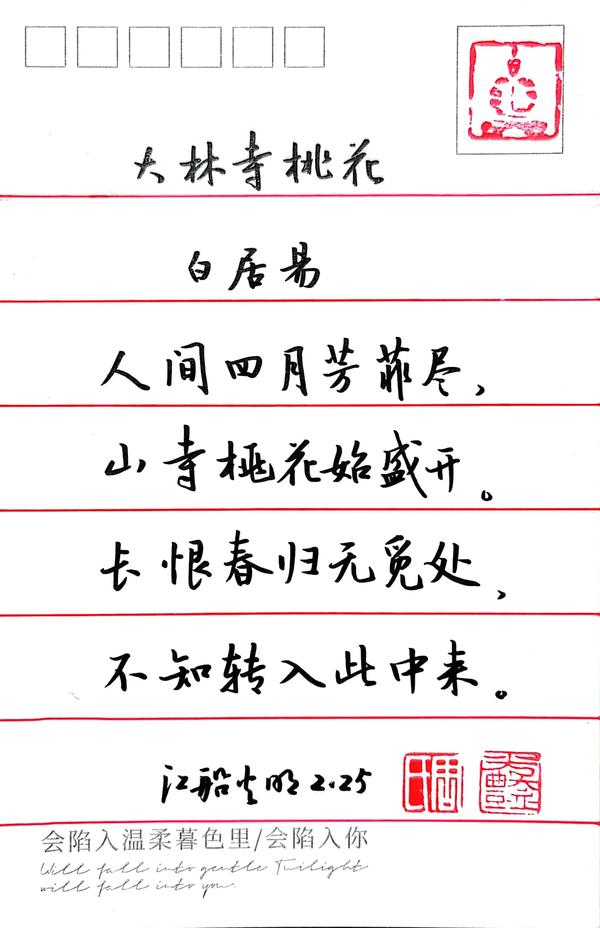 大林寺桃花
白居易
人间四月芳菲尽，
山寺桃花始盛开。
长恨春归无觅处，
不知转入此中来。
江船火明 2.25
会陷入温柔暮色里/会陷入你
Will fall into gentle Twilight
will fall into you.